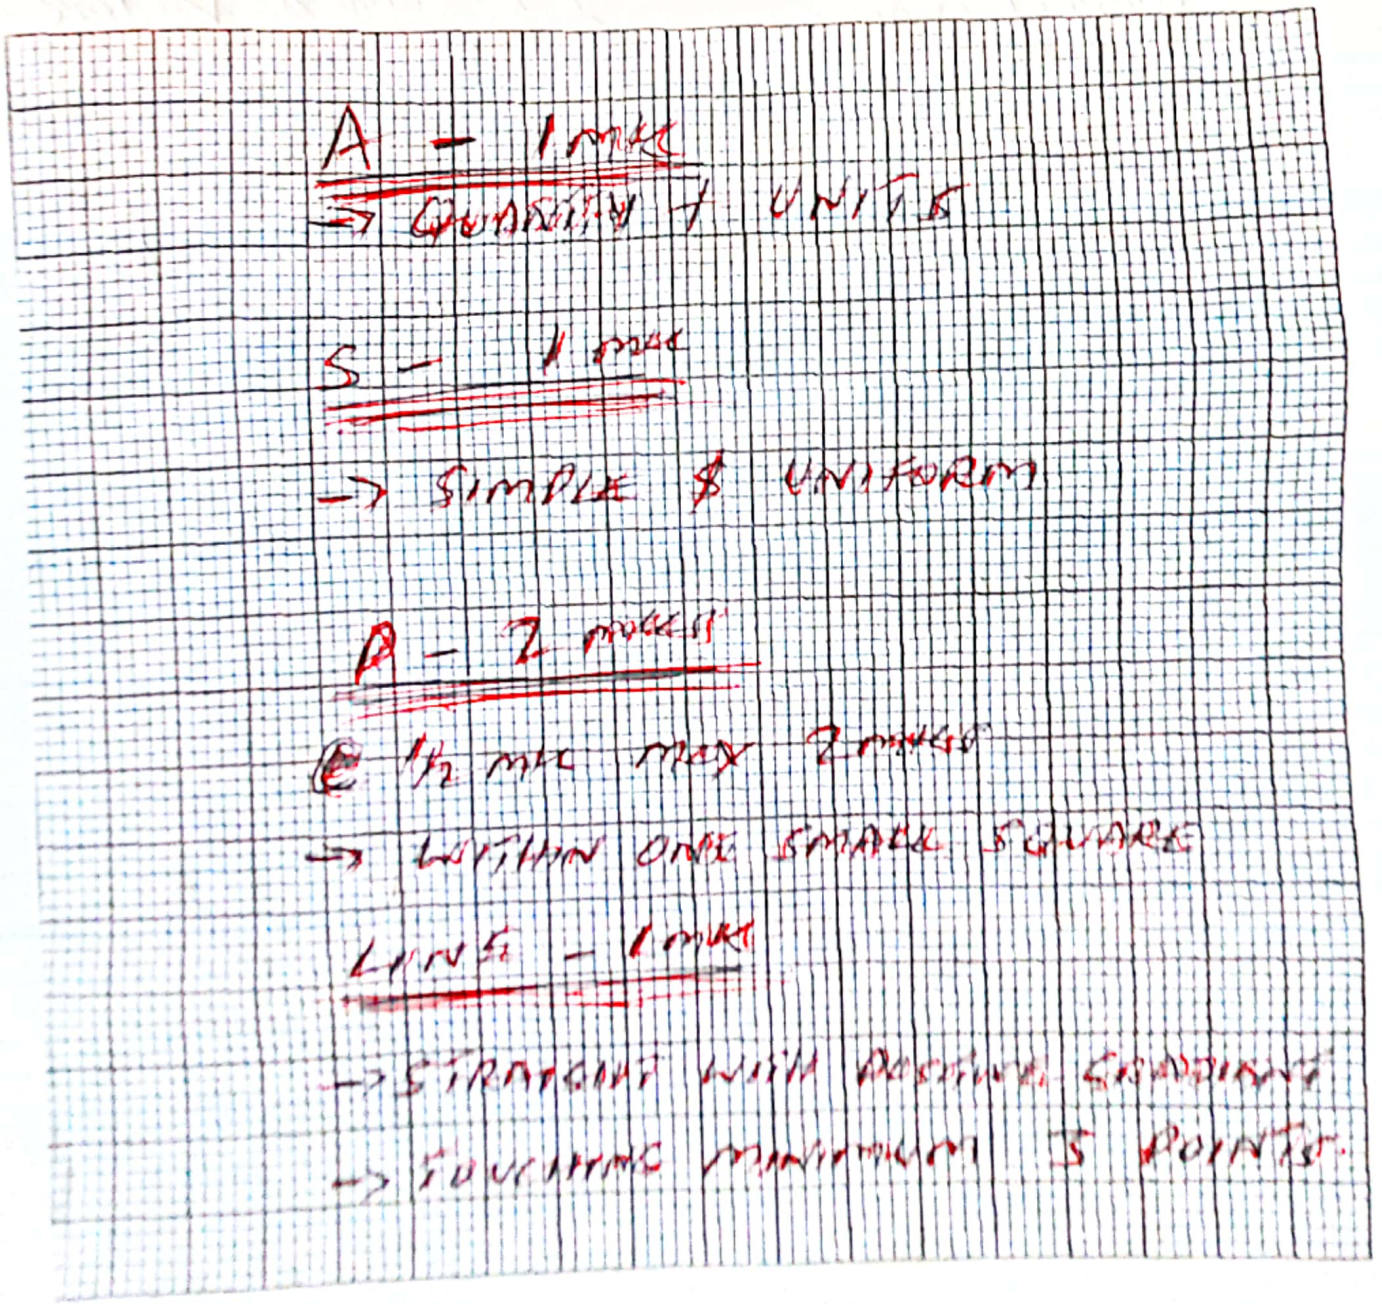 A - 1 mk
→ QUANTITY + UNITS
S - 1 mk
→ SIMPLE & UNIFORM
P - 2 mks
@ 1/2 mk max 2 mks
→ WITHIN ONE SMALL SQUARE
LINE - 1 mk
→ STRAIGHT WITH POSITIVE GRADIENT
→ TOUCHING MINIMUM 3 POINTS.